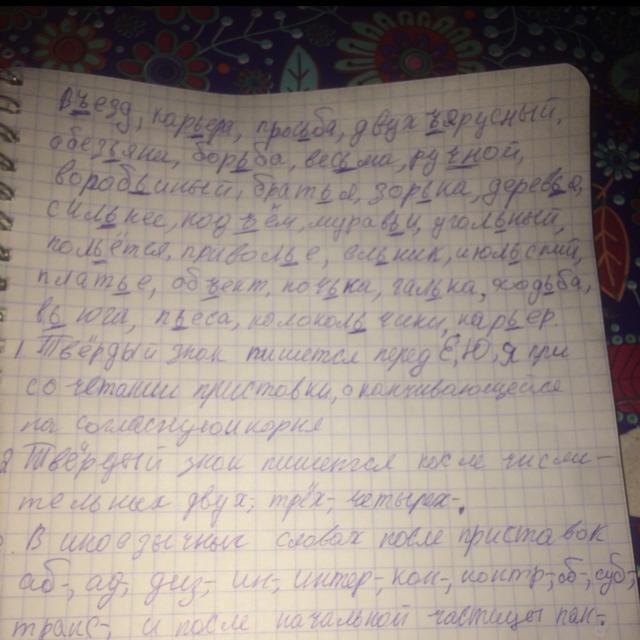 Въезд, карьера, просьба, двухъярусный,
обезьяна, борьба, весьма, ручной,
воробьиный, братья, зорька, деревья,
сильнее, подъём, муравьи, угольный,
польётся, приволье, ельник, июльский,
платье, объект, ночька, галька, ходьба,
вьюга, пьеса, колокольчики, карьер.
1. Твёрдый знак пишется перед Е, Ю, Я при
сочетании приставки, оканчивающейся
на согласную и корня
2. Твёрдый знак пишется после числи-
тельных двух-, трёх-, четырех-.
. В иноязычных словах после приставок
аб-, ад-, диз-, ин-, интер-, кон-, контр-, об-, суб-,
транс-, и после начальной частицы пан-.